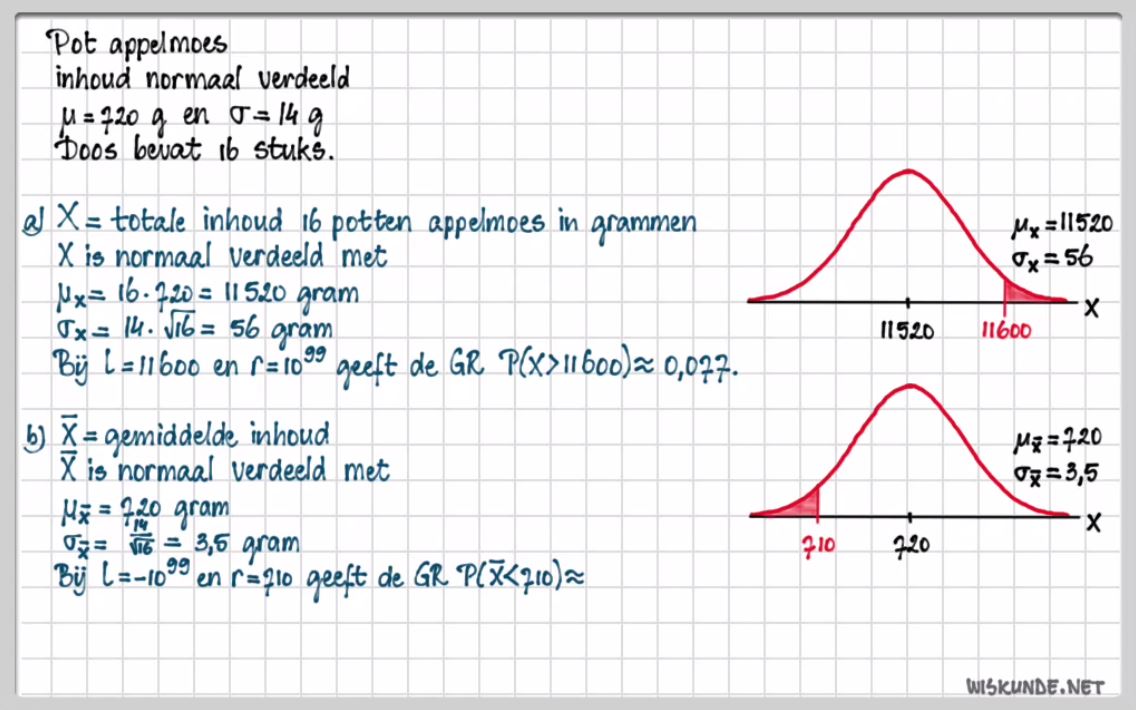 Pot appelmoes
inhoud normaal verdeeld
μ = 720 g en σ = 14 g
Doos bevat 16 stuks.
a) X = totale inhoud 16 potten appelmoes in grammen
X is normaal verdeeld met
μx = 16 · 720 = 11520 gram
σx = 14 · √16 = 56 gram
Bij l = 11600 en r = 10^99 geeft de GR P(X > 11600) ≈ 0,077.
μx = 11520
σx = 56
X
11520 11600
b) X̅ = gemiddelde inhoud
X̅ is normaal verdeeld met
μx̅ = 720 gram
σx̅ = 14/√16 = 3,5 gram
Bij l = -10^99 en r = 710 geeft de GR P(X̅ < 710) ≈
μx̅ = 720
σx̅ = 3,5
X
710 720
WISKUNDE.NET